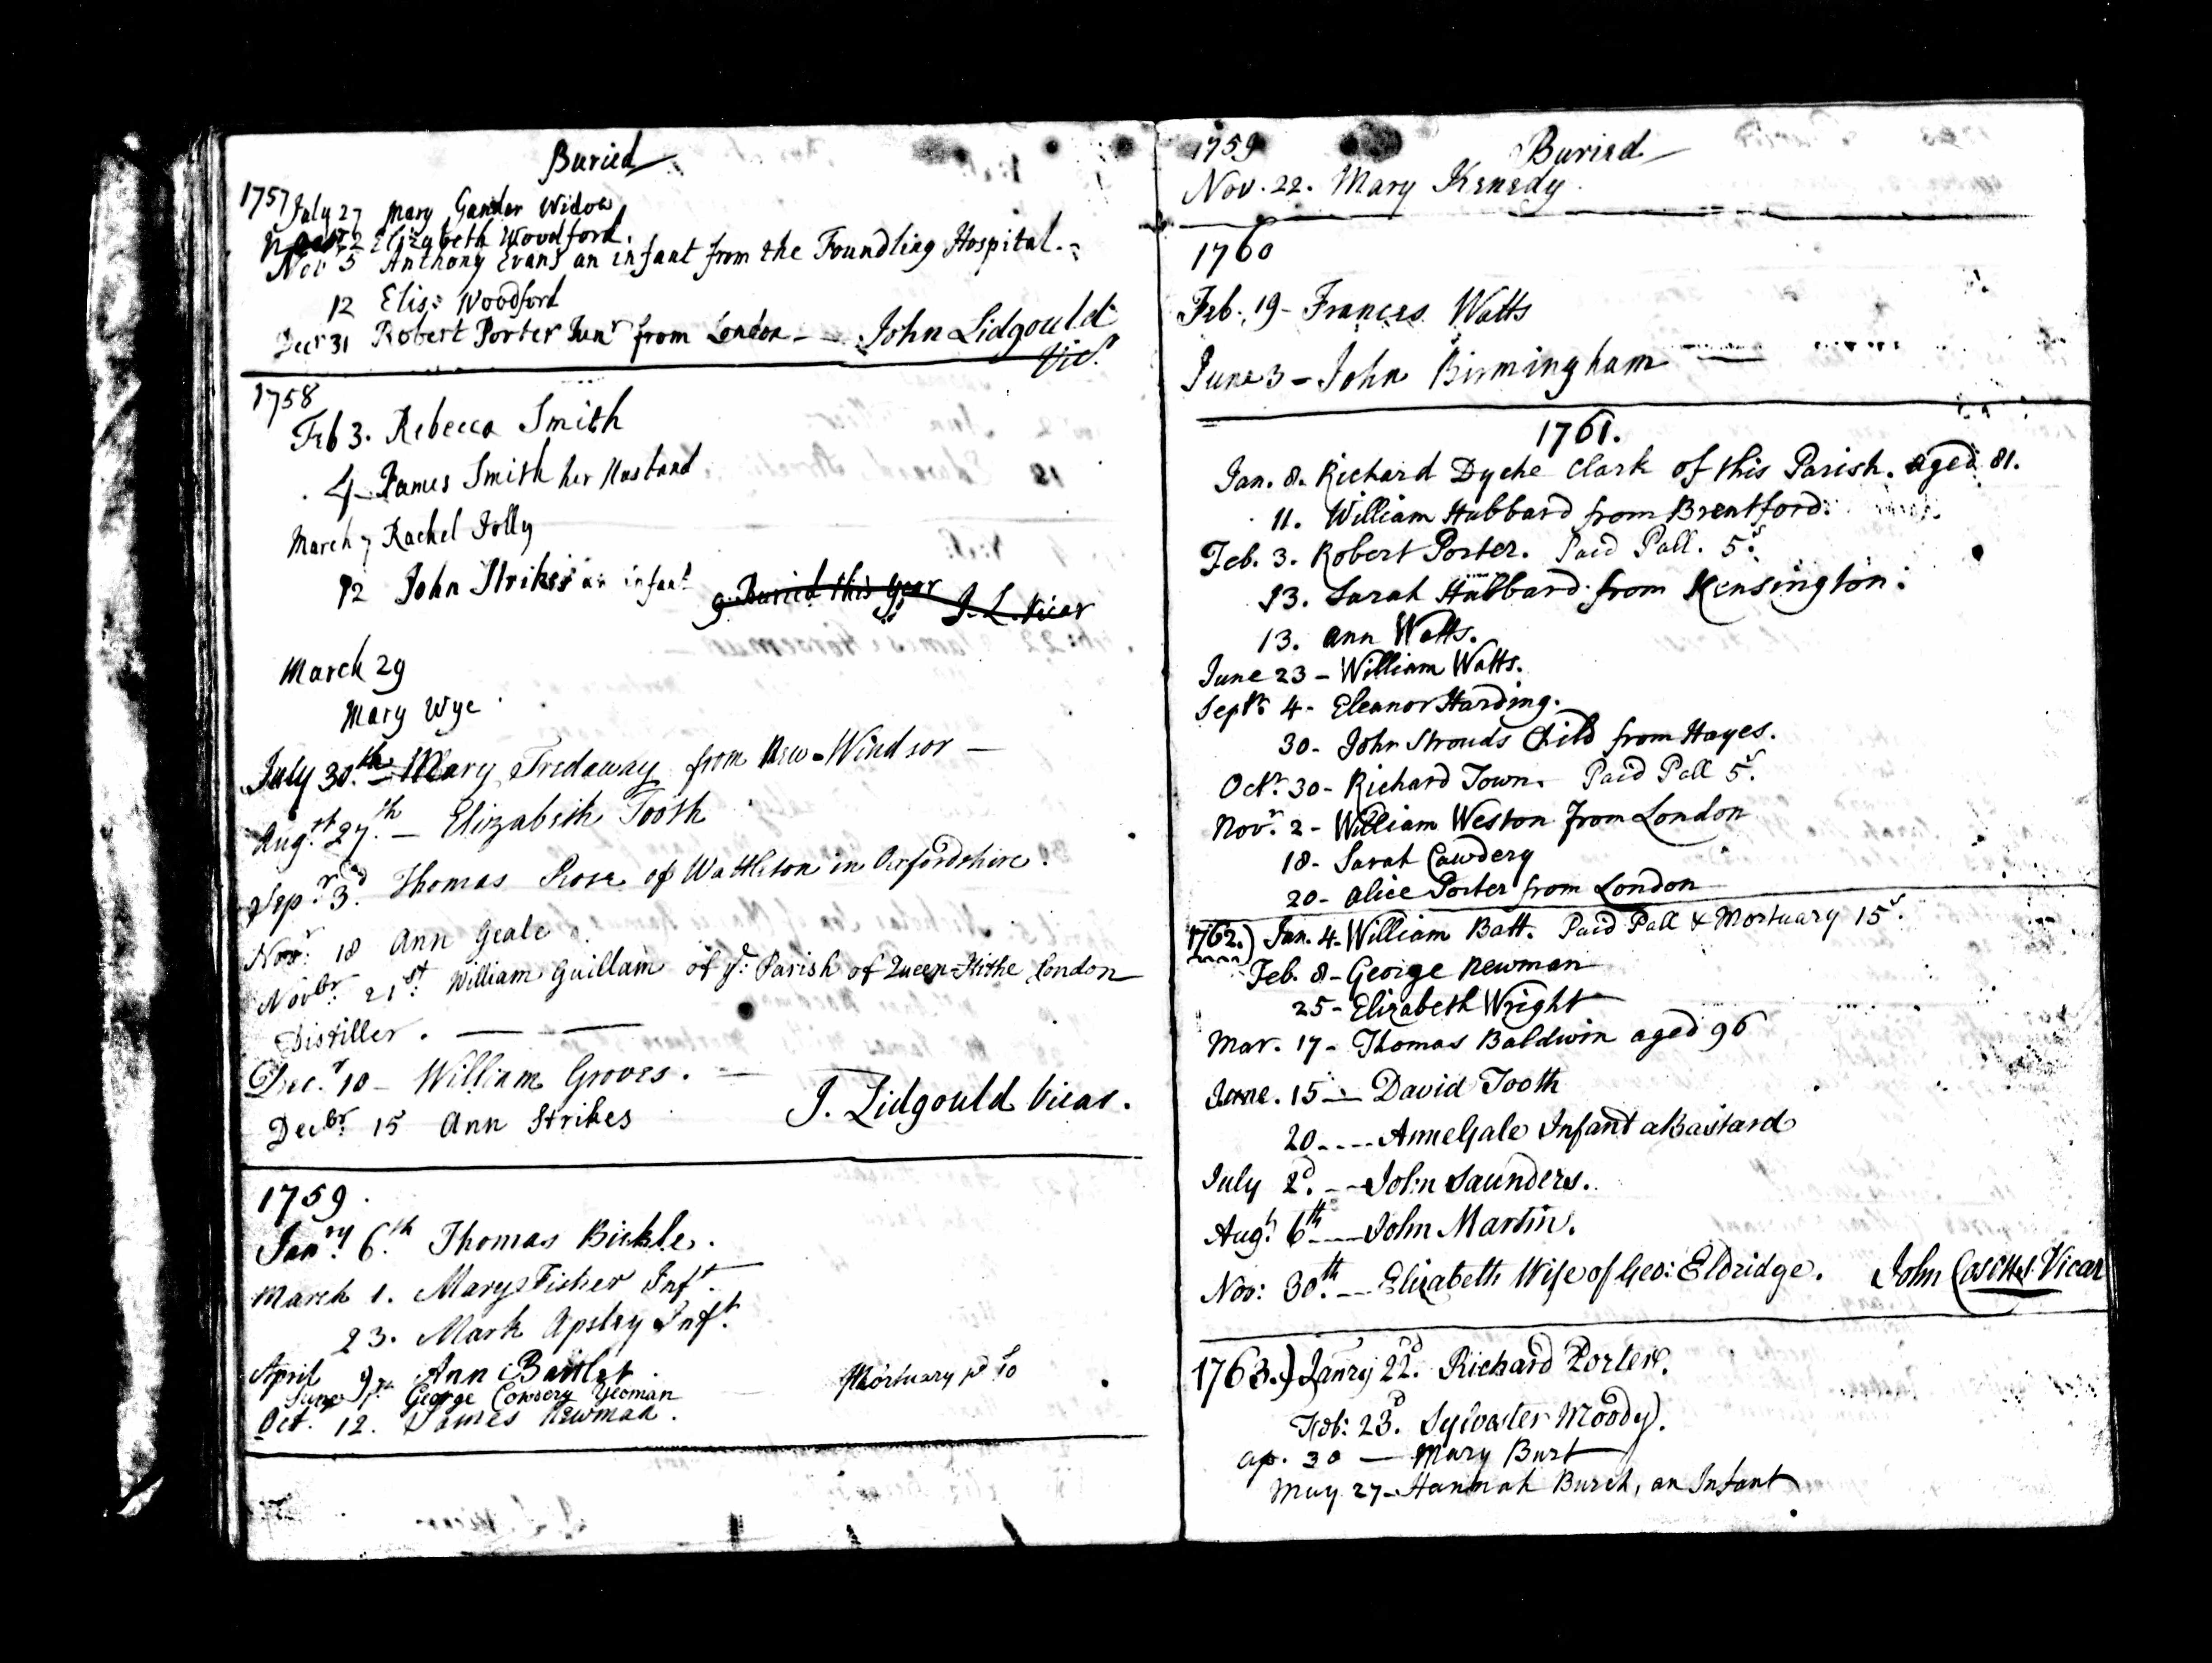 Buried
1757 July 27 Mary Gander Widow
12 Elizabeth Woodford.
Nov 5 Anthony Evans an infant from the Foundling Hospital.
12 Elis: Woodford
Decr 31 Robert Porter Junr from London - John Lidgould
Vicr
1758
Feb 3. Rebecca Smith
4 James Smith her Husband
March 7 Rachel Jolly
12 John Strikes an infant
9 Buried this year J. L. Vicar
March 29
Mary Wye
July 30th Mary Tredaway from New-Windsor -
Augst 27th - Elizabeth Tooth
Sepr 3d Thomas Rose of Wattleton in Oxfordshire.
Novr 18 Ann Geale
Novbr 21st William Guillam of ye Parish of Queen-Hithe London
Distiller.
Decr 10 - William Groves.
Decbr 15 Ann Strikes J. Lidgould Vicar.
1759.
Janry 6th Thomas Bickle.
March 1. Mary Fisher Inft
23. Mark Apsley Inft.
April 9 Ann Bartlet.
June George Cowdery Yeoman Mortuary pd 10
Oct. 12. James Newman.
1759 Buried
Nov. 22. Mary Kenedy.
1760
Feb. 19 - Frances Watts
June 3 - John Birmingham
1761.
Jan. 8. Richard Dyche Clark of this Parish. aged 81.
11. William Hubbard from Brentford.
Feb. 3. Robert Porter. Paid Pall. 5s.
13. Sarah Hubbard from Kensington.
13. Ann Watts.
June 23 - William Watts.
Septr 4 - Eleanor Harding.
30 - John Strouds Child from Hayes.
Octr 30 - Richard Town. Paid Pall 5s.
Novr. 2 - William Weston from London
18 - Sarah Cawdery
20 - Alice Porter from London
1762.) Jan. 4. William Batt. Paid Pall & Mortuary 15s.
Feb. 8 - George Newman
25 - Elizabeth Wright
Mar. 17 - Thomas Baldwin aged 96
June. 15 - David Tooth
20 - Anne Gale Infant a Bastard
July 2d. - John Saunders.
Augt 6th - John Martin.
Nov: 30th - Elizabeth Wife of Geo: Eldridge. John Vicar
1763.) Janry 22d. Richard Porter.
Feb: 23d. Sylvester Moody.
Ap. 30 - Mary Burt
May 27 - Hannah Burch, an Infant